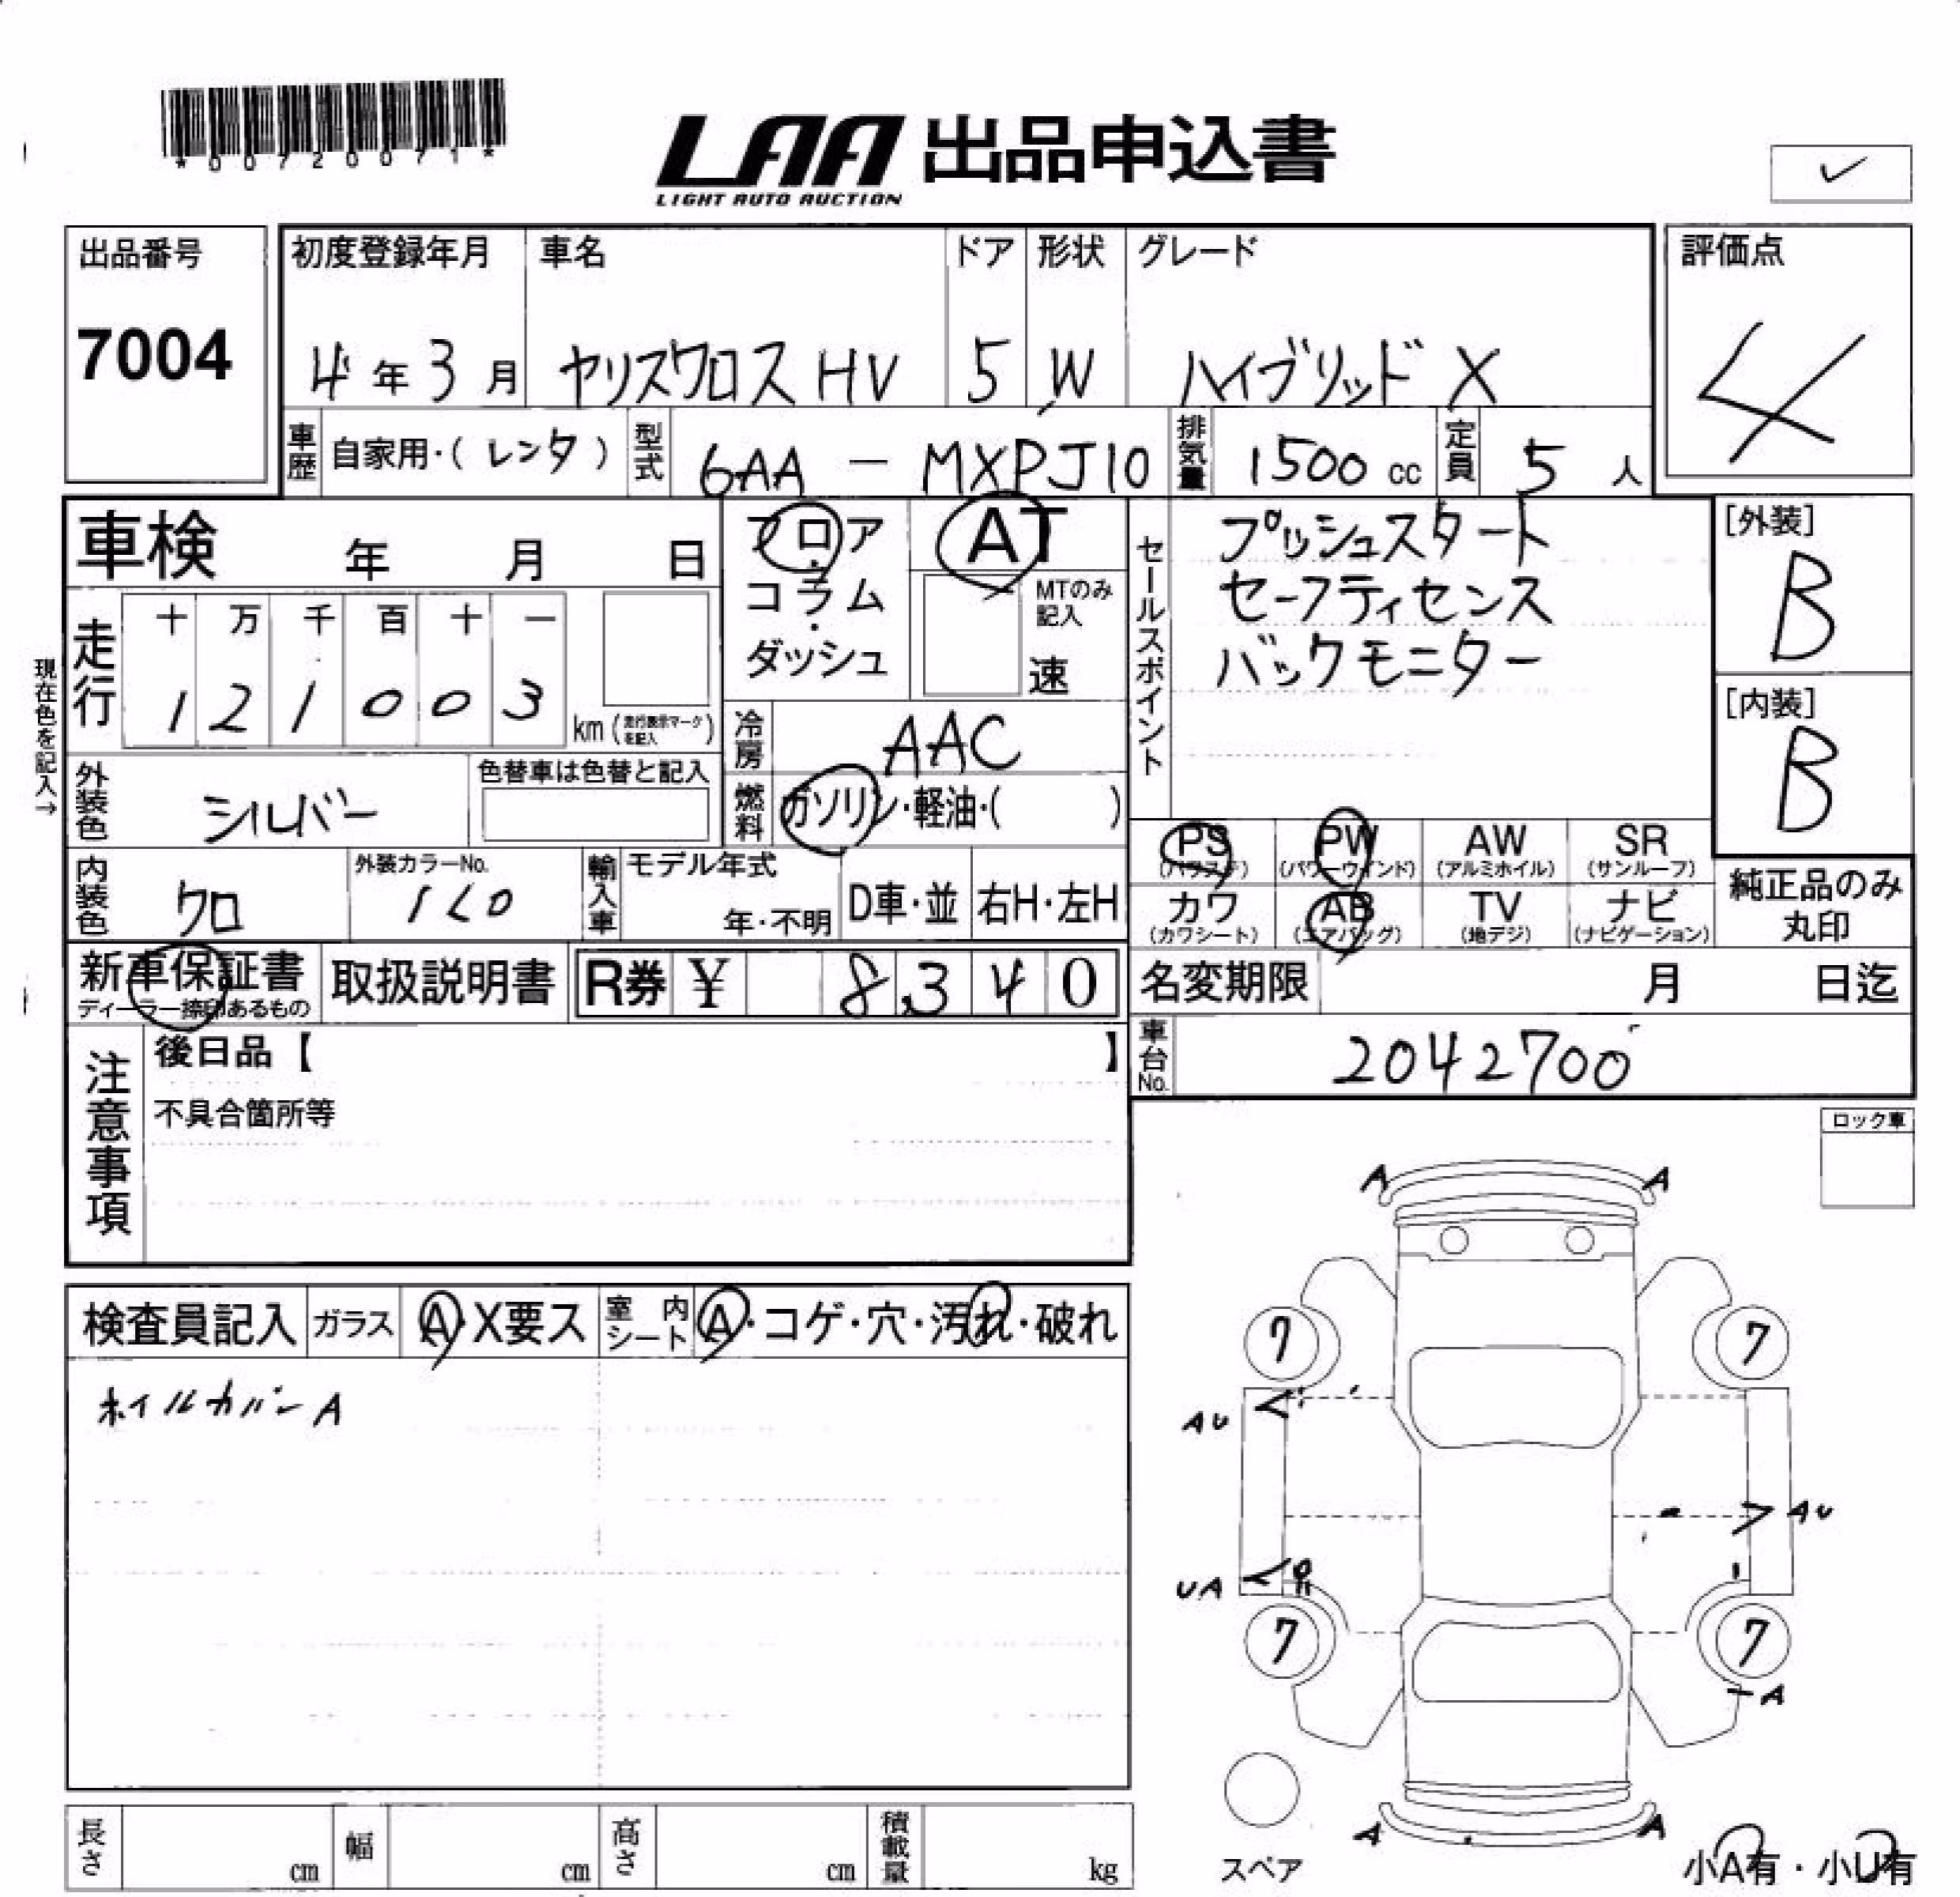 *00720071*
LAA 出品申込書
LIGHT AUTO AUCTION
✓
出品番号
7004
初度登録年月 車名 ドア 形状 グレード
4年 3月 ヤリスクロス HV 5 W ハイブリッド X
評価点
4
車歴 自家用・( レンタ ) 型式 6AA - MXPJ10 排気量 1500 cc 定員 5 人
車検 年 月 日
フロア・コラム・ダッシュ
AT
MTのみ記入
速
セールスポイント
プッシュスタート
セーフティセンス
バックモニター
[外装]
B
[内装]
B
現在色を記入→
走行 十 万 千 百 十 一
1 2 1 0 0 3 km (走行表示マークを記入)
冷房 AAC
外装色 シルバー 色替車は色替と記入
燃料 ガソリン・軽油・( )
PS (パワステ) PW (パワーウインド) AW (アルミホイル) SR (サンルーフ)
カワ (カワシート) AB (エアバッグ) TV (地デジ) ナビ (ナビゲーション)
純正品のみ丸印
内装色 クロ 外装カラーNo. 1L0 輸入車 モデル年式 年・不明 D車・並 右H・左H
新車保証書 取扱説明書 R券 ¥ 8,340
ディーラー捺印あるもの
名変期限 月 日迄
車台No. 2042700
注意事項
後日品【 】
不具合箇所等
ロック車
検査員記入 ガラス A・X要ス 室内シート A・コゲ・穴・汚れ・破れ
ホイルカバーA
A A
7 7
AU
AU
UA
7 7
A
A A
スペア
小A有・小U有
長さ cm 幅 cm 高さ cm 積載量 kg